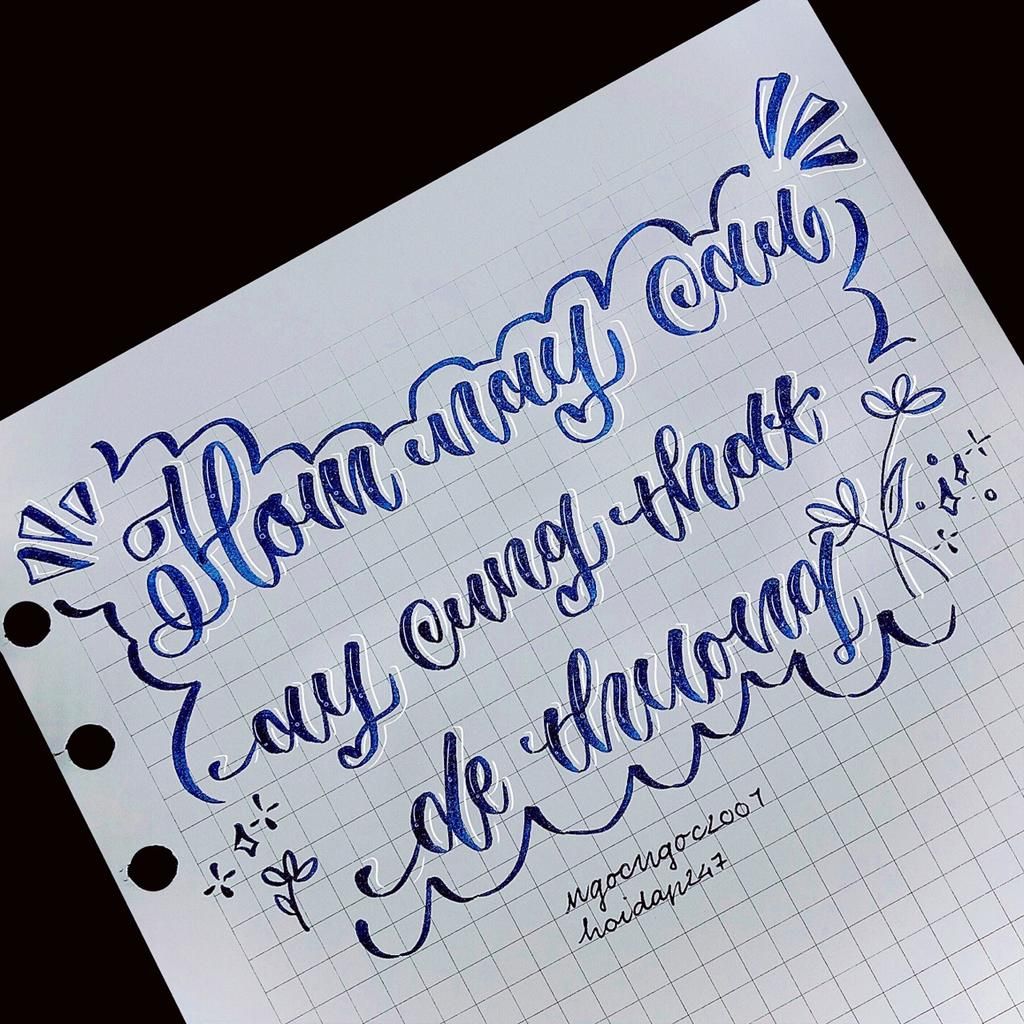 Hom nay cau
ay cung that
de thuong
ngocngoc2001
hoidap247